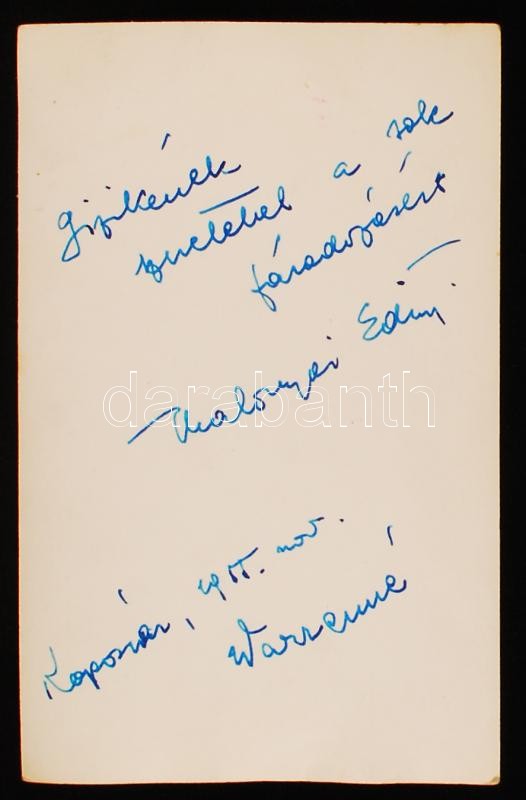 Gizikének
szeretettel a sok
fáradozásért
Malonyai
darabanth
Kaposvár, 1955. nov.
Warrenné